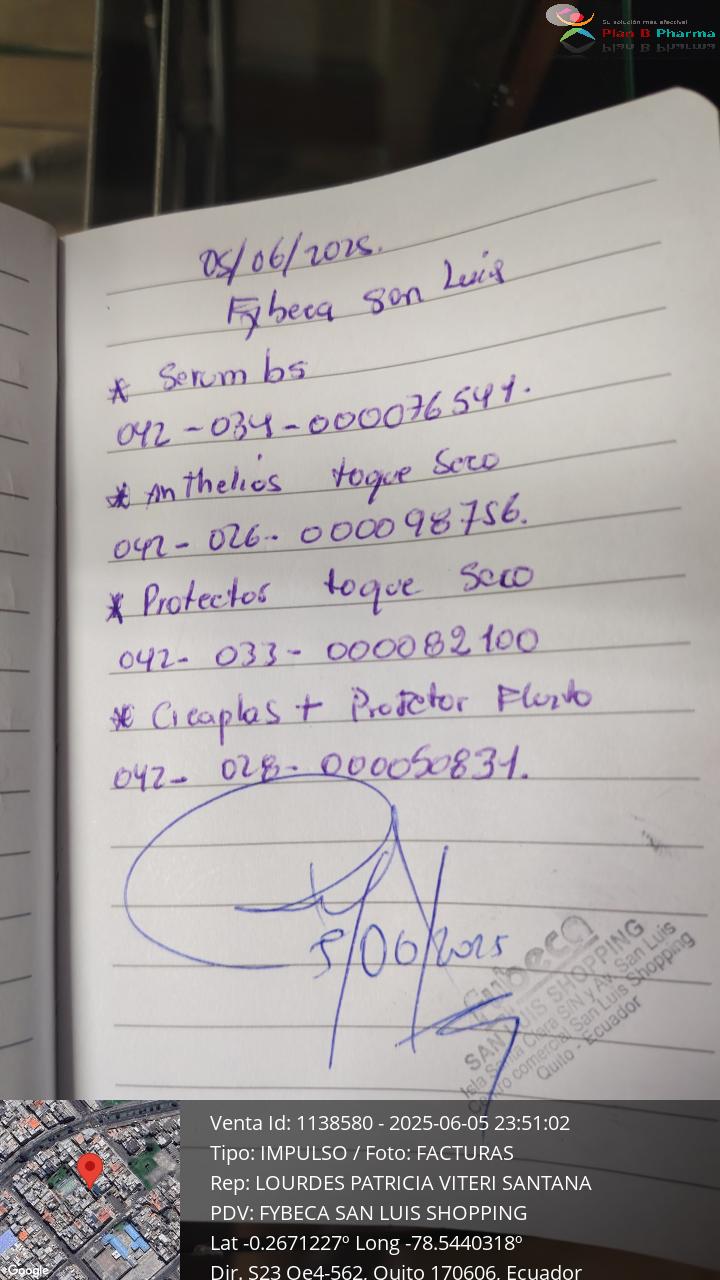 Su solución más efectiva!
Plan B Pharma
05/06/2025.
Fybeca San Luis
* Serum b5
042-034-000076541.
* Anthelios toque Seco
042-026-000098756.
* Protector toque Seco
042-033-000082100
* Cicaplas + Protetor Fluido
042-028-000050831.
5/06/2025
Fybeca
SAN LUIS SHOPPING
Isla Santa Clara S/N y Av. San Luis
Centro comercial San Luis Shopping
Quito - Ecuador
Venta Id: 1138580 - 2025-06-05 23:51:02
Tipo: IMPULSO / Foto: FACTURAS
Rep: LOURDES PATRICIA VITERI SANTANA
PDV: FYBECA SAN LUIS SHOPPING
Lat -0.2671227º Long -78.5440318º
Dir. S23 Oe4-562, Quito 170606, Ecuador
Google